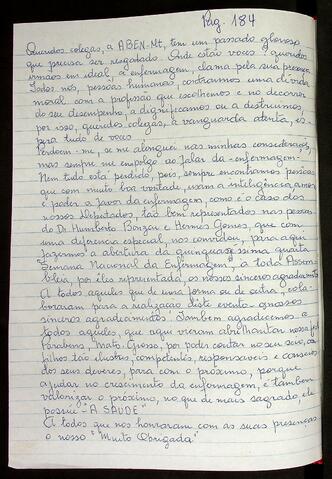 Pag. 184
Queridos colegas, a ABEN-Mt, tem um passado glorioso
que precisa ser resgatado. Onde estão vocês? queridos
irmãos em ideal, a enfermagem, clama pela sua presença
Todos nós, pessoas humanas, contraímos uma dívida
moral com a profissão que escolhemos e no decorrer
do seu desempenho, a dignificamos ou a destruimos,
por isso, queridos colegas, a vanguarda atenta, es-
pera tudo de voces.
Perdoem-me, se me alonguei nas minhas considerações,
mas sempre me empolgo ao falar da enfermagem-
Nem tudo está perdido, pois, sempre encontramos pessoas
que com muito boa vontade, usam a inteligência, amor
e poder a favor da enfermagem, como é o caso dos
nossos Deputados, tão bem representados nas pessoas
do Dr. Humberto Bosaipo e Hermes Gomes, que com
uma deferencia especial, nos convidou, para aqui
fazermos a abertura da quinquagessima quarta
Semana Nacional da Enfermagem, a toda Assem-
bléia, por eles representada, os nossos sinceros agradecimentos
A todos aqueles que de uma forma ou de outra, cola-
boraram para a realização deste evento-nossos
sinceros agradecimentos! Tambem agradecemos a
todos aqueles, que aqui vieram abrilhantar nossa festa
Parabens, Mato Grosso, por poder contar no seu seio, com
filhos tão ilustres, competentes, responsaveis e conscios
dos seus deveres, para com o próximo, porque
ajudar no crescimento da enfermagem, é tambem
valorizar o próximo, no que de mais sagrado, ele
possui - "A SAUDE"
A todos que nos honraram com as suas presenças
o nosso "Muito Obrigada"